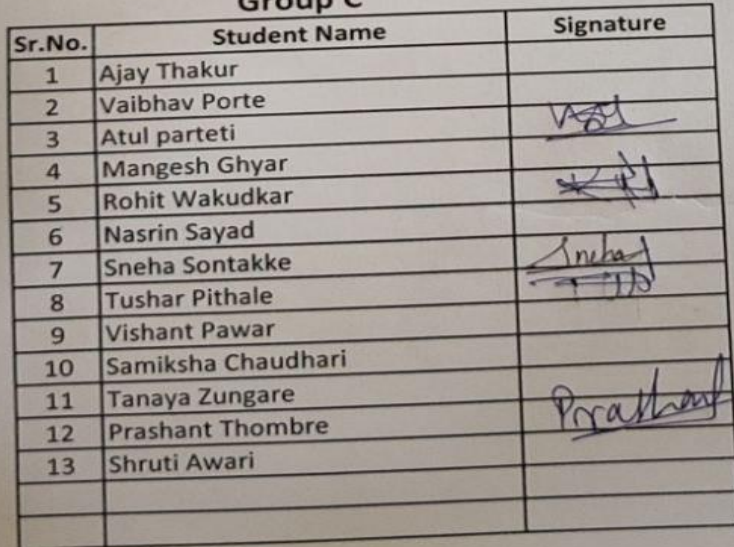 Group C
Sr.No. Student Name Signature
1 Ajay Thakur
2 Vaibhav Porte
3 Atul parteti
4 Mangesh Ghyar
5 Rohit Wakudkar
6 Nasrin Sayad
7 Sneha Sontakke Sneha
8 Tushar Pithale
9 Vishant Pawar
10 Samiksha Chaudhari
11 Tanaya Zungare
12 Prashant Thombre Prashant
13 Shruti Awari